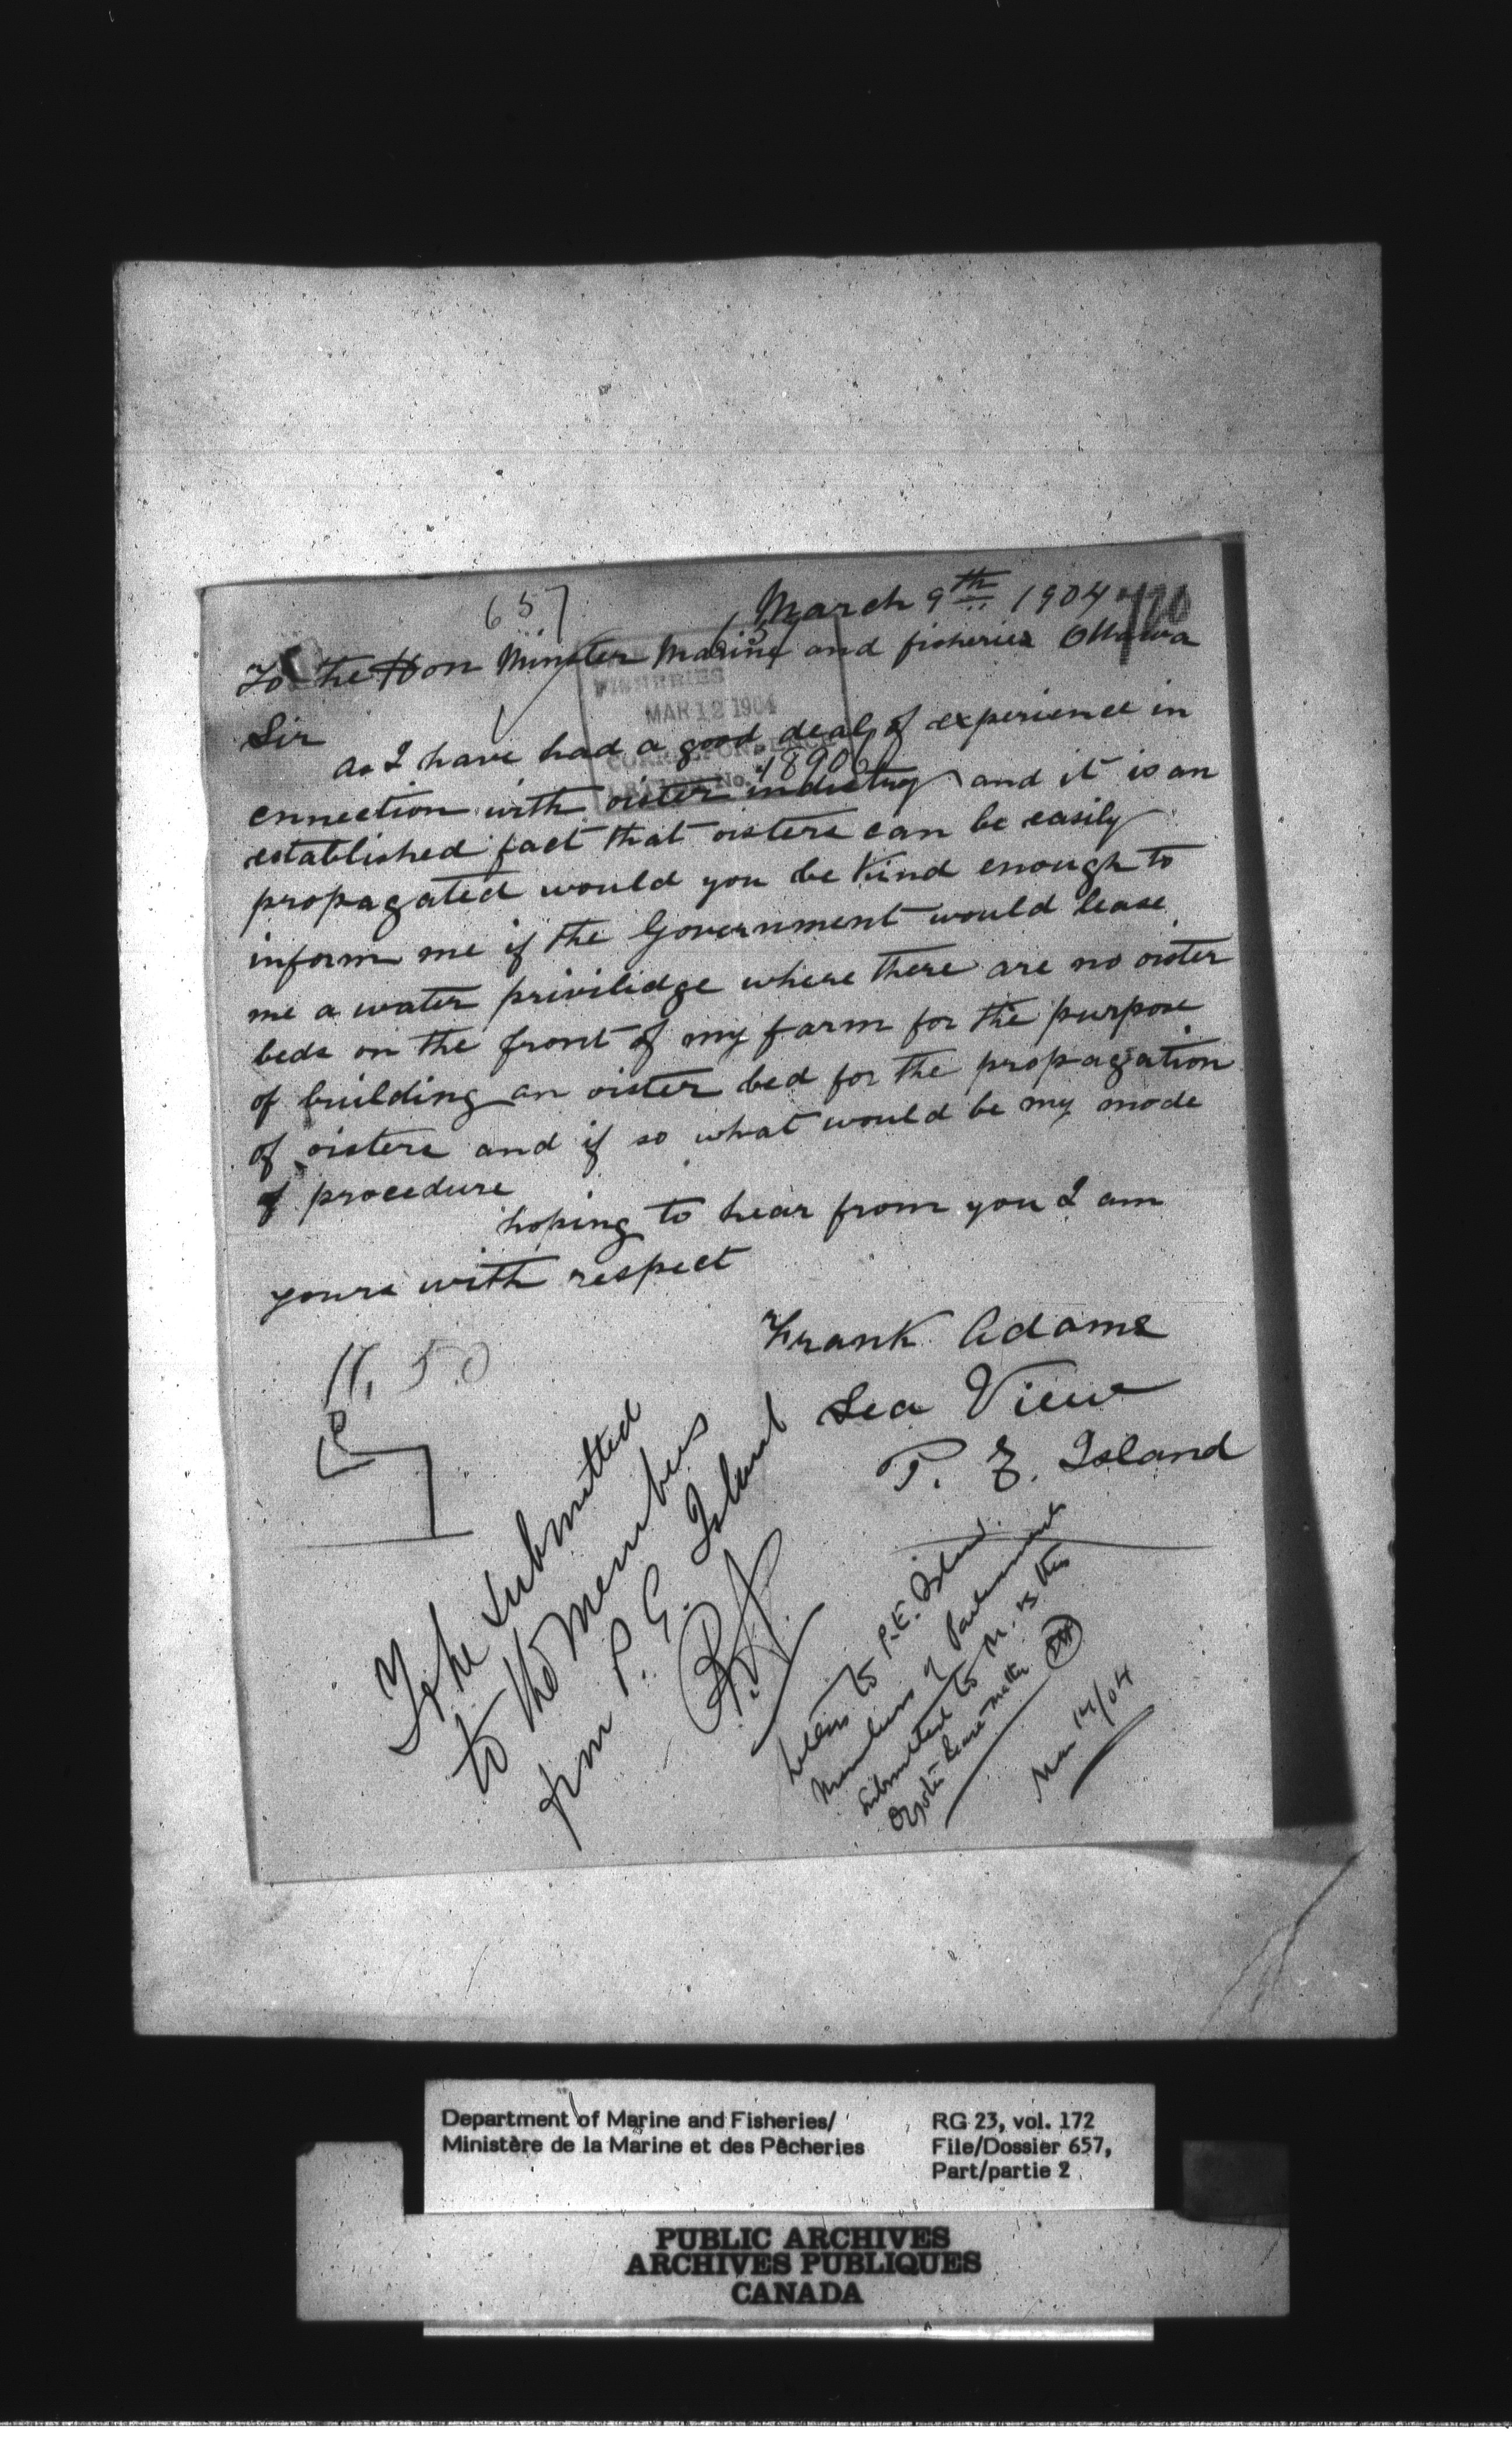 657
March 9th 1904
120
To the Hon Minster Marine and fisheries Ottawa
FISHERIES
MAR 12 1904
CORRESPONDENCE
No. 18906
Sir
as I have had a good deal of experience in
cnnection with oister industry and it is an
established fact that oisters can be easily
propagated would you be Kind enough to
inform me if the Government would lease
me a water privilidge where there are no oister
beds on the front of my farm for the purpose
of building an oister bed for the propagation
of oisters and if so what would be my mode
of procedure
hoping to hear from you I am
yours with respect
Frank Adams
Sea View
P. E. Island
To be submitted
to the members
from P. E. Island
Letters to P.E. Island
Members of Parliament
submitted to M. vs this
Oyster lease matter
Mar 14/04
Department of Marine and Fisheries/
Ministère de la Marine et des Pêcheries
RG 23, vol. 172
File/Dossier 657,
Part/partie 2
PUBLIC ARCHIVES
ARCHIVES PUBLIQUES
CANADA